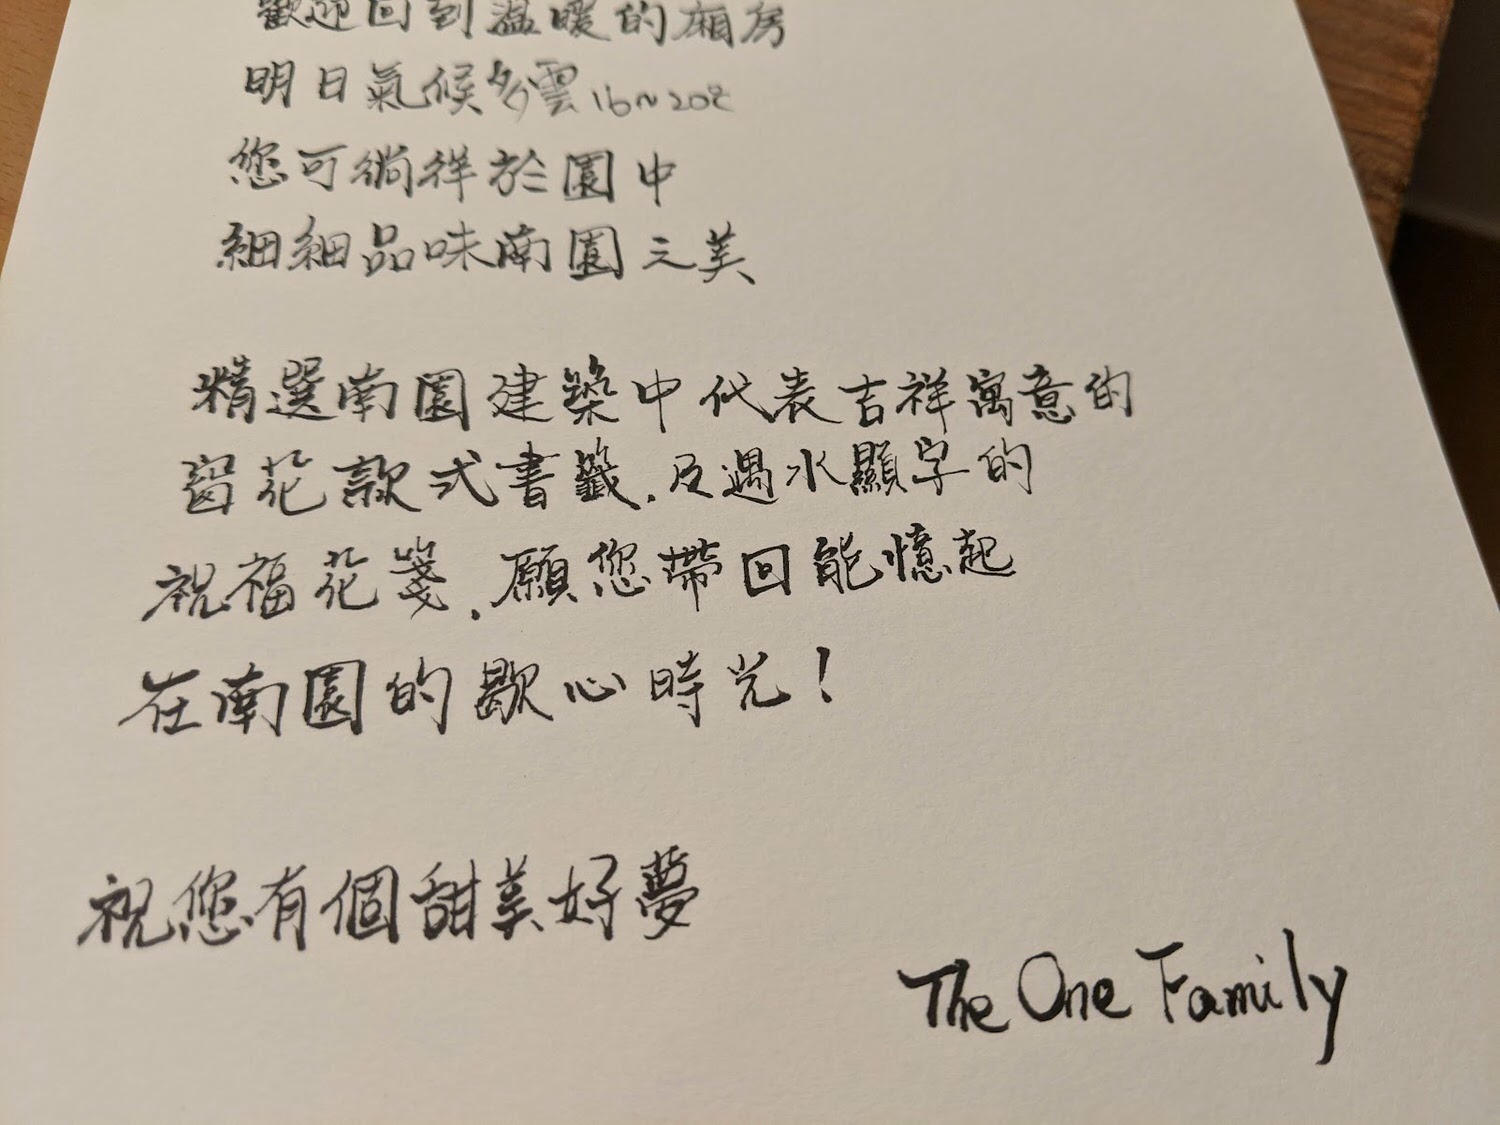 歡迎回到溫暖的廂房
明日氣候多雲16~20℃
您可徜徉於園中
細細品味南園之美
精選南園建築中代表吉祥寓意的
窗花款式書籤.及遇水顯字的
祝福花箋.願您帶回能憶起
在南園的歇心時光!
祝您有個甜美好夢
The One Family